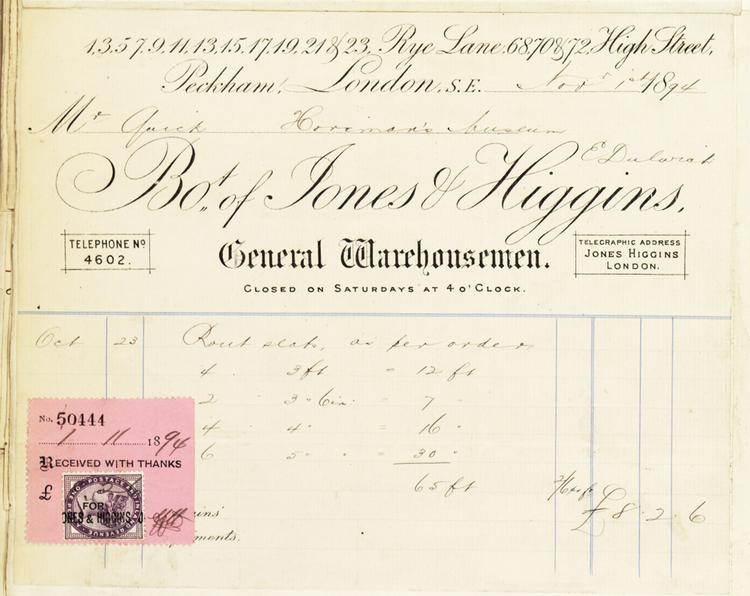 1,3,5,7,9,11,13,15,17,19,21 & 23, Rye Lane, 68,70 & 72, High Street,
Peckham, London, S.E. Novr 1st 1894
Mr Quick Horniman's Museum
E Dulwich
Bot. of Jones & Higgins,
TELEPHONE No
4602.
General Warehousemen.
TELEGRAPHIC ADDRESS
JONES HIGGINS
LONDON.
CLOSED ON SATURDAYS AT 4 O'CLOCK.
Oct 23 Rout seats, as per order
4 3ft = 12 ft
2 3 " 6in: " 7 "
4 4 " = 16 "
6 5 " " 30 "
65 ft 2/6 per ft £8. 2. 6
No. 50444
1 11 1894
RECEIVED WITH THANKS
£
FOR
JONES & HIGGINS
ments.